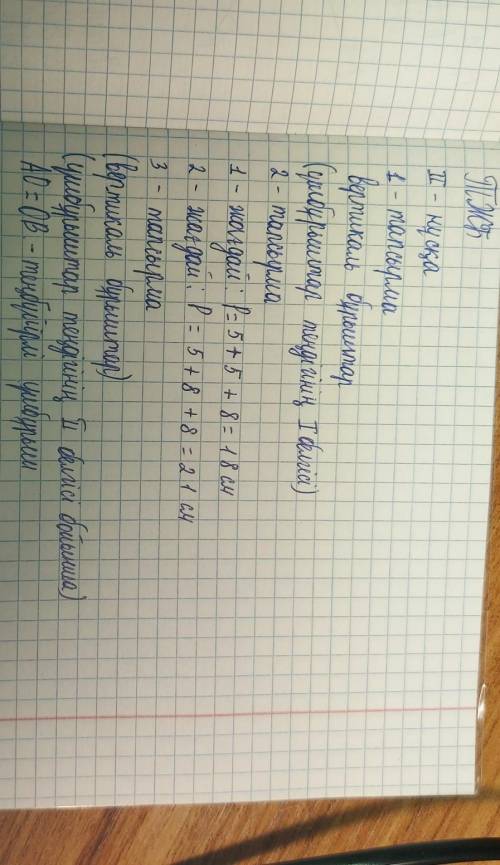 ТЖБ
II - нұсқа
1 - тапсырма
вертикаль бұрыштар
(үшбұрыштар теңдігінің I белгісі)
2 - тапсырма
1 - жағдай: P = 5 + 5 + 8 = 18 см
2 - жағдай: P = 5 + 8 + 8 = 21 см
3 - тапсырма
(вертикаль бұрыштар)
(үшбұрыштар теңдігінің II белгісі бойынша)
AO = OB - теңбүйірлі үшбұрыш